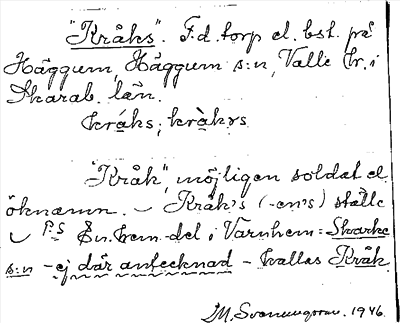 "Kråks". F.d. torp el. bst. på
Häggum, Häggum s:n, Valle hr. i
Skarab. län.
kráks; kràkɤs
"Kråk", möjligen soldat el.
öknamn. ⌣ Kråk's (-en's) ställe
⌣ P.S En hem.del i Varnhem = Skarke
s:n - ej där antecknad - kallas Kråk.
M. Svanungsson. 1946.